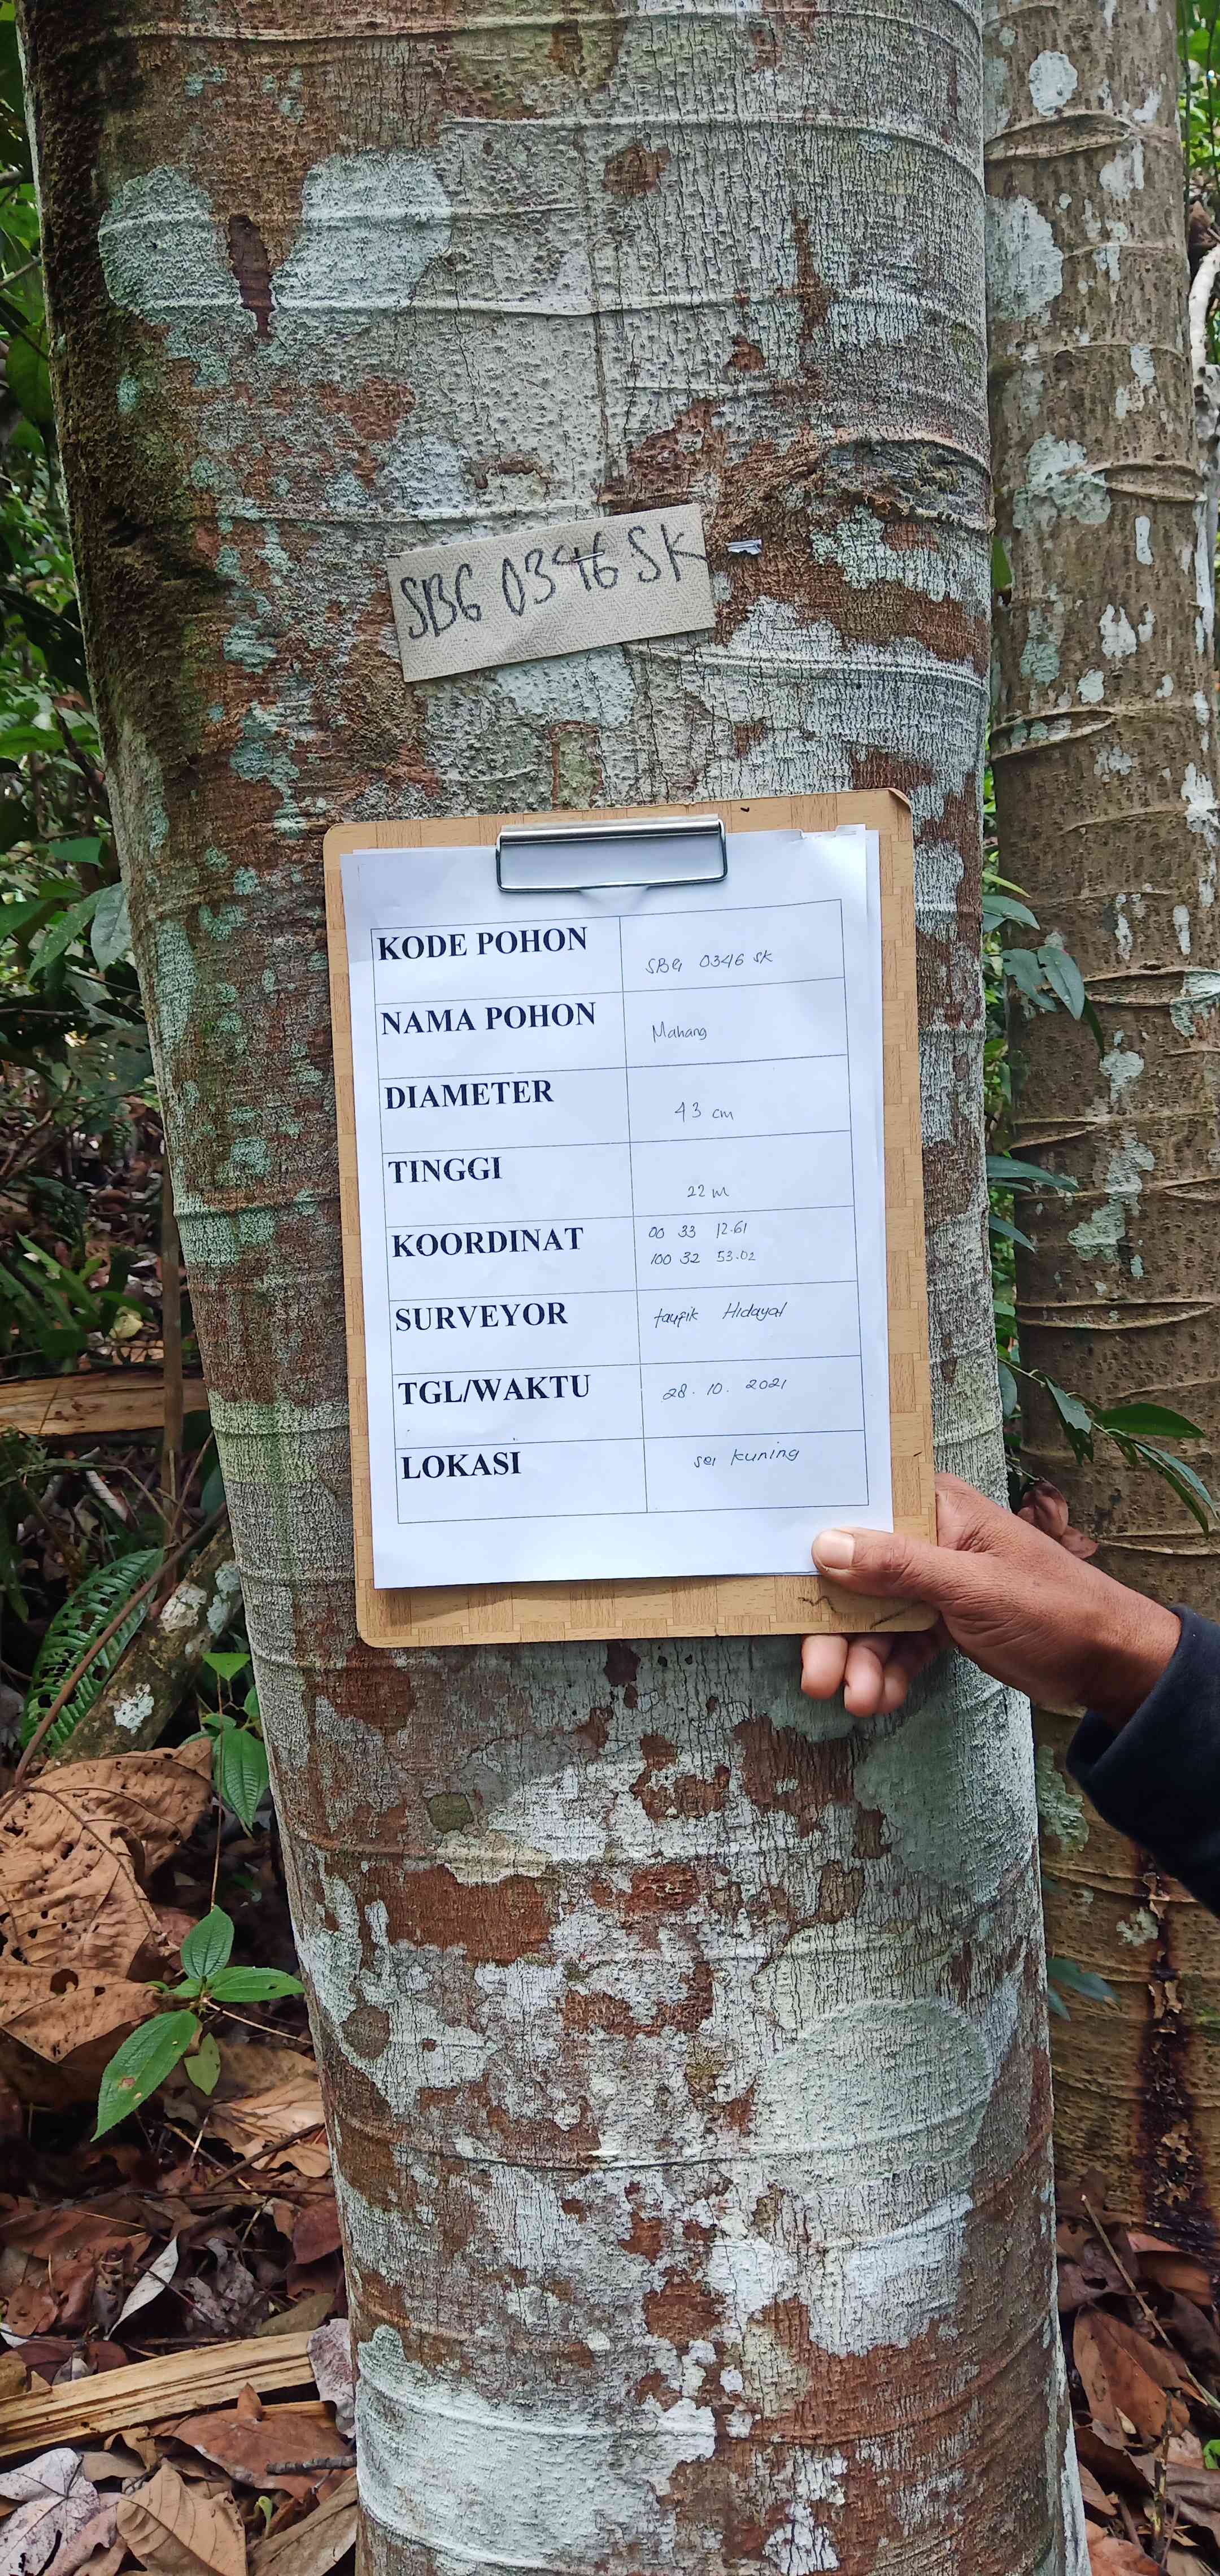 SBG 0346 SK
KODE POHON SBG 0346 SK
NAMA POHON Mahang
DIAMETER 43 cm
TINGGI 22 m
KOORDINAT 00 33 12.61
100 32 53.02
SURVEYOR taufik Hidayat
TGL/WAKTU 28. 10. 2021
LOKASI sei kuning